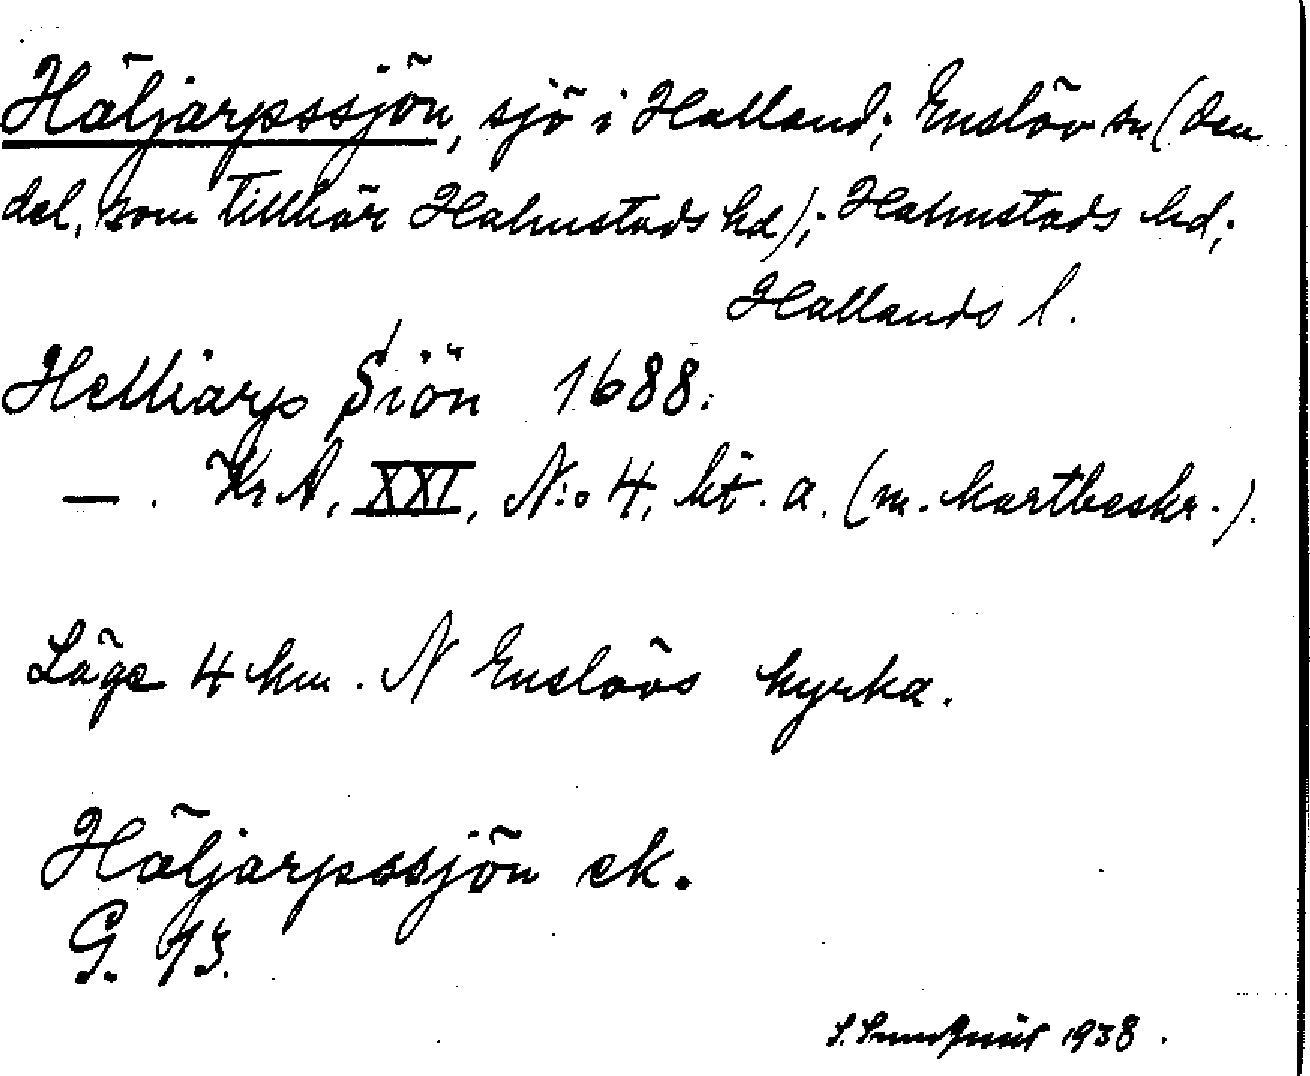 Häljarpssjön, sjö i Halland; Enslöv sn (den
del, som tillhör Halmstads hd); Halmstads hd;
Hallands l.
Helliarp Siön 1688.
— . Kr A, XXI, N:o 4, kt. a. (m. kartbeskr.).
Läge 4 km. N Enslövs kyrka.
Häljarpssjön ek.
G. 73.
S. Sundquist 1938.